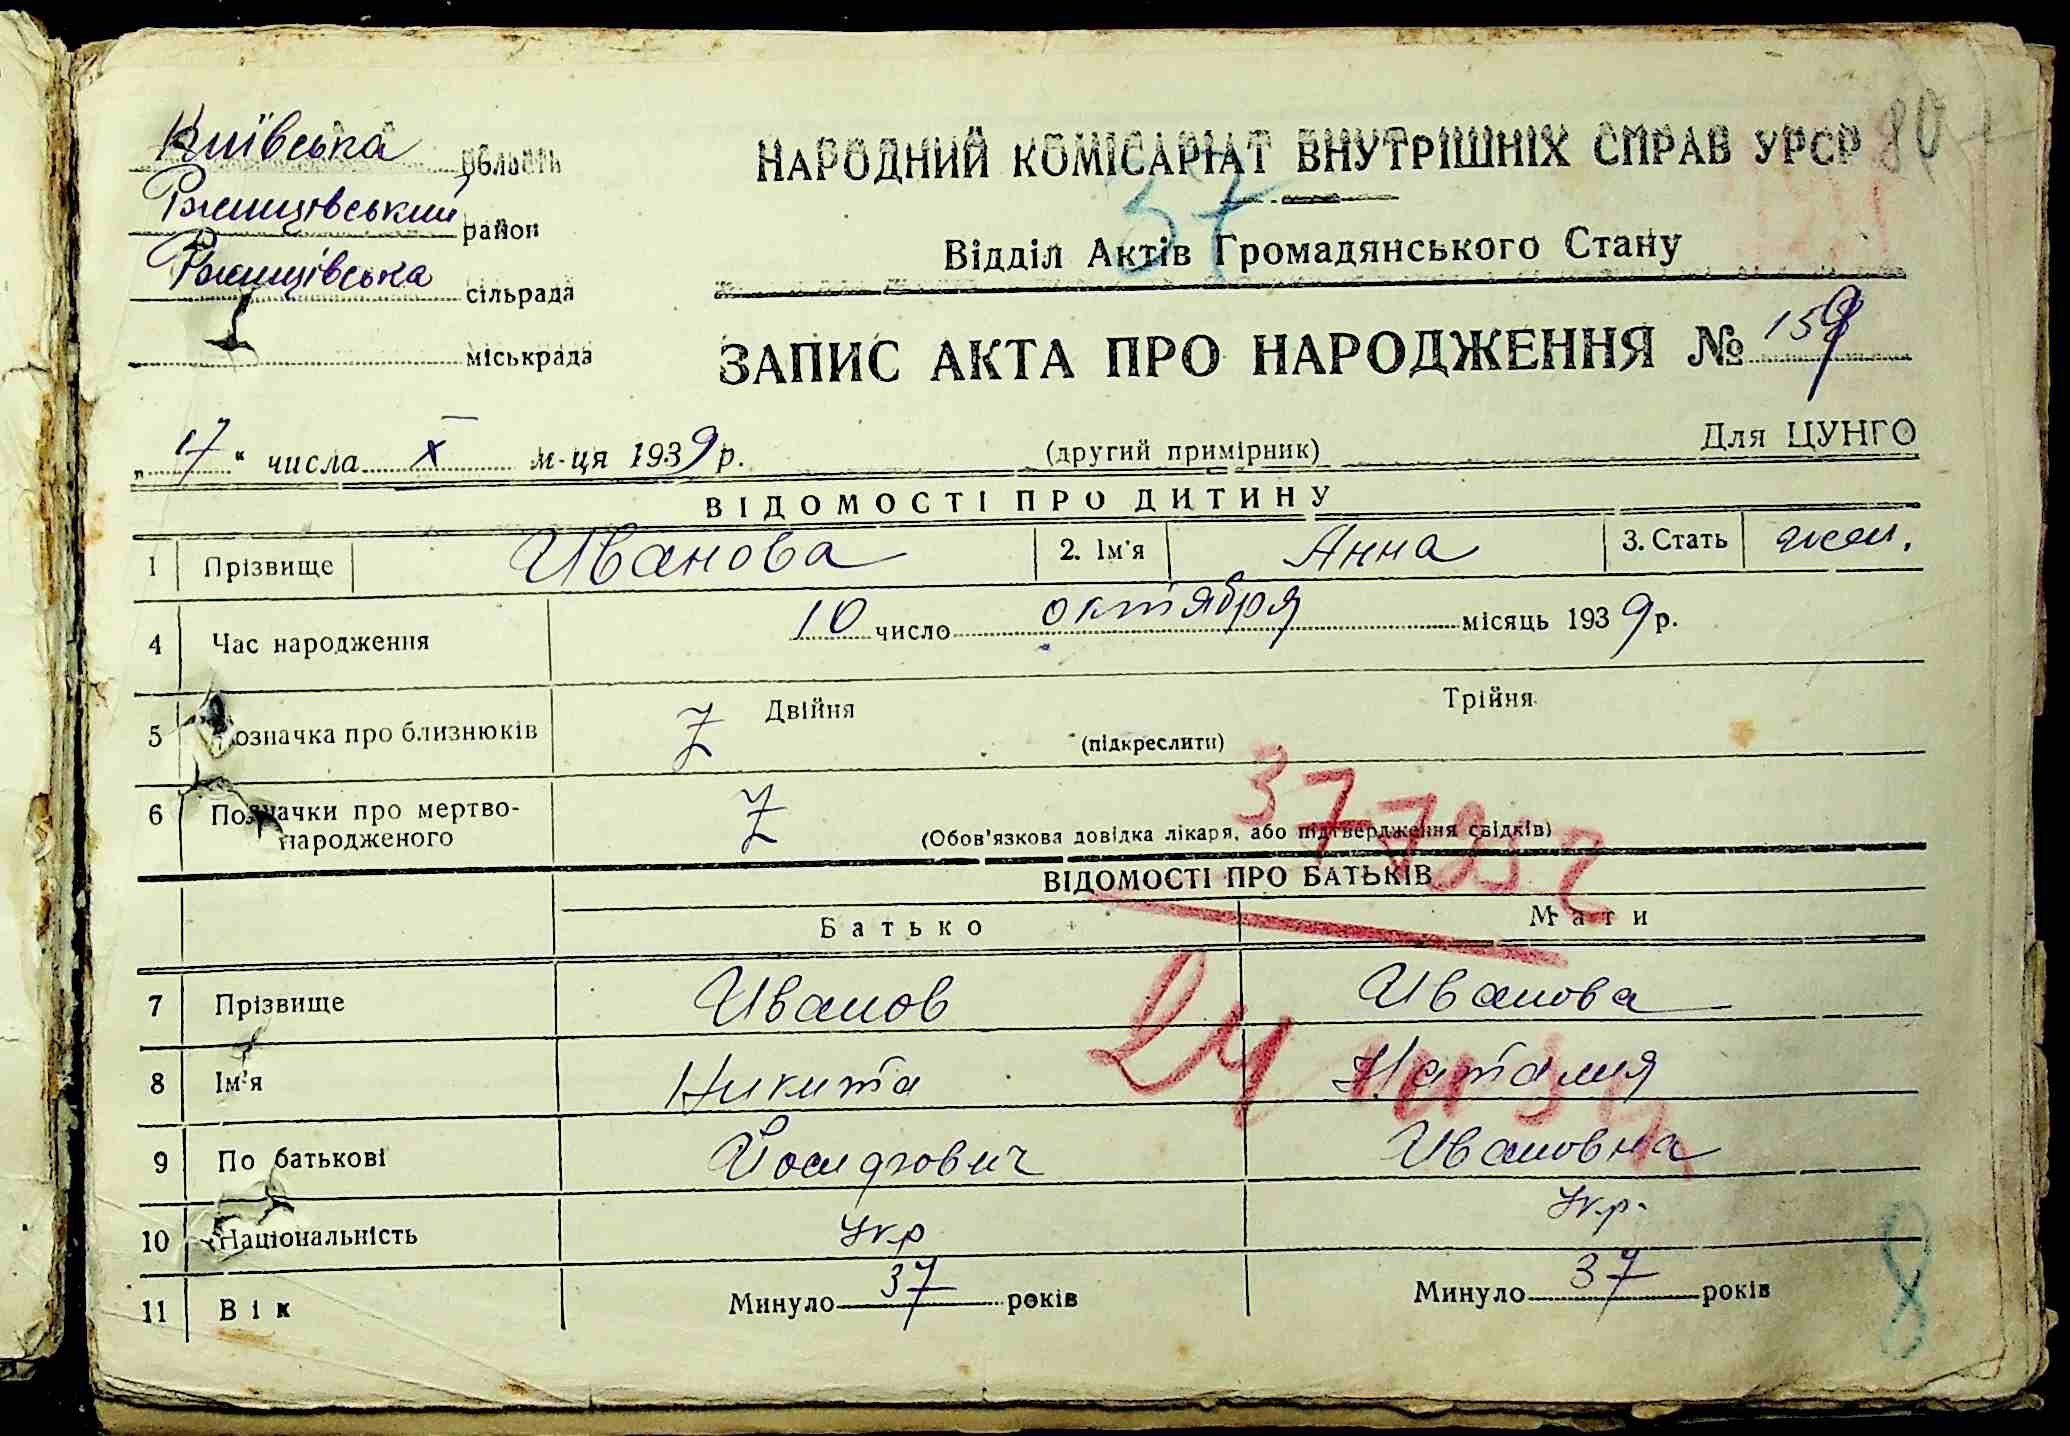 Київська область
Ржищівський район
Ржищівська сільрада
міськрада
НАРОДНИЙ КОМІСАРІАТ ВНУТРІШНІХ СПРАВ УРСР
37
Відділ Актів Громадянського Стану
ЗАПИС АКТА ПРО НАРОДЖЕННЯ № 159
„17“ числа X м-ця 1939 р.
(другий примірник)
Для ЦУНГО
ВІДОМОСТІ ПРО ДИТИНУ
1 Прізвище Иванова 2. Ім'я Анна 3. Стать жен.
4 Час народження 10 число октября місяць 1939 р.
5 Позначка про близнюків Z Двійня Трійня
(підкреслити)
6 Позначки про мертво-
народженого Z (Обов'язкова довідка лікаря, або підтвердження свідків)
ВІДОМОСТІ ПРО БАТЬКІВ
Батько Мати
7 Прізвище Иванов Иванова
8 Ім'я Никита Наталия
9 По батькові Йосифович Ивановна
10 Національність Укр Укр.
11 Вік Минуло 37 років Минуло 37 років
8